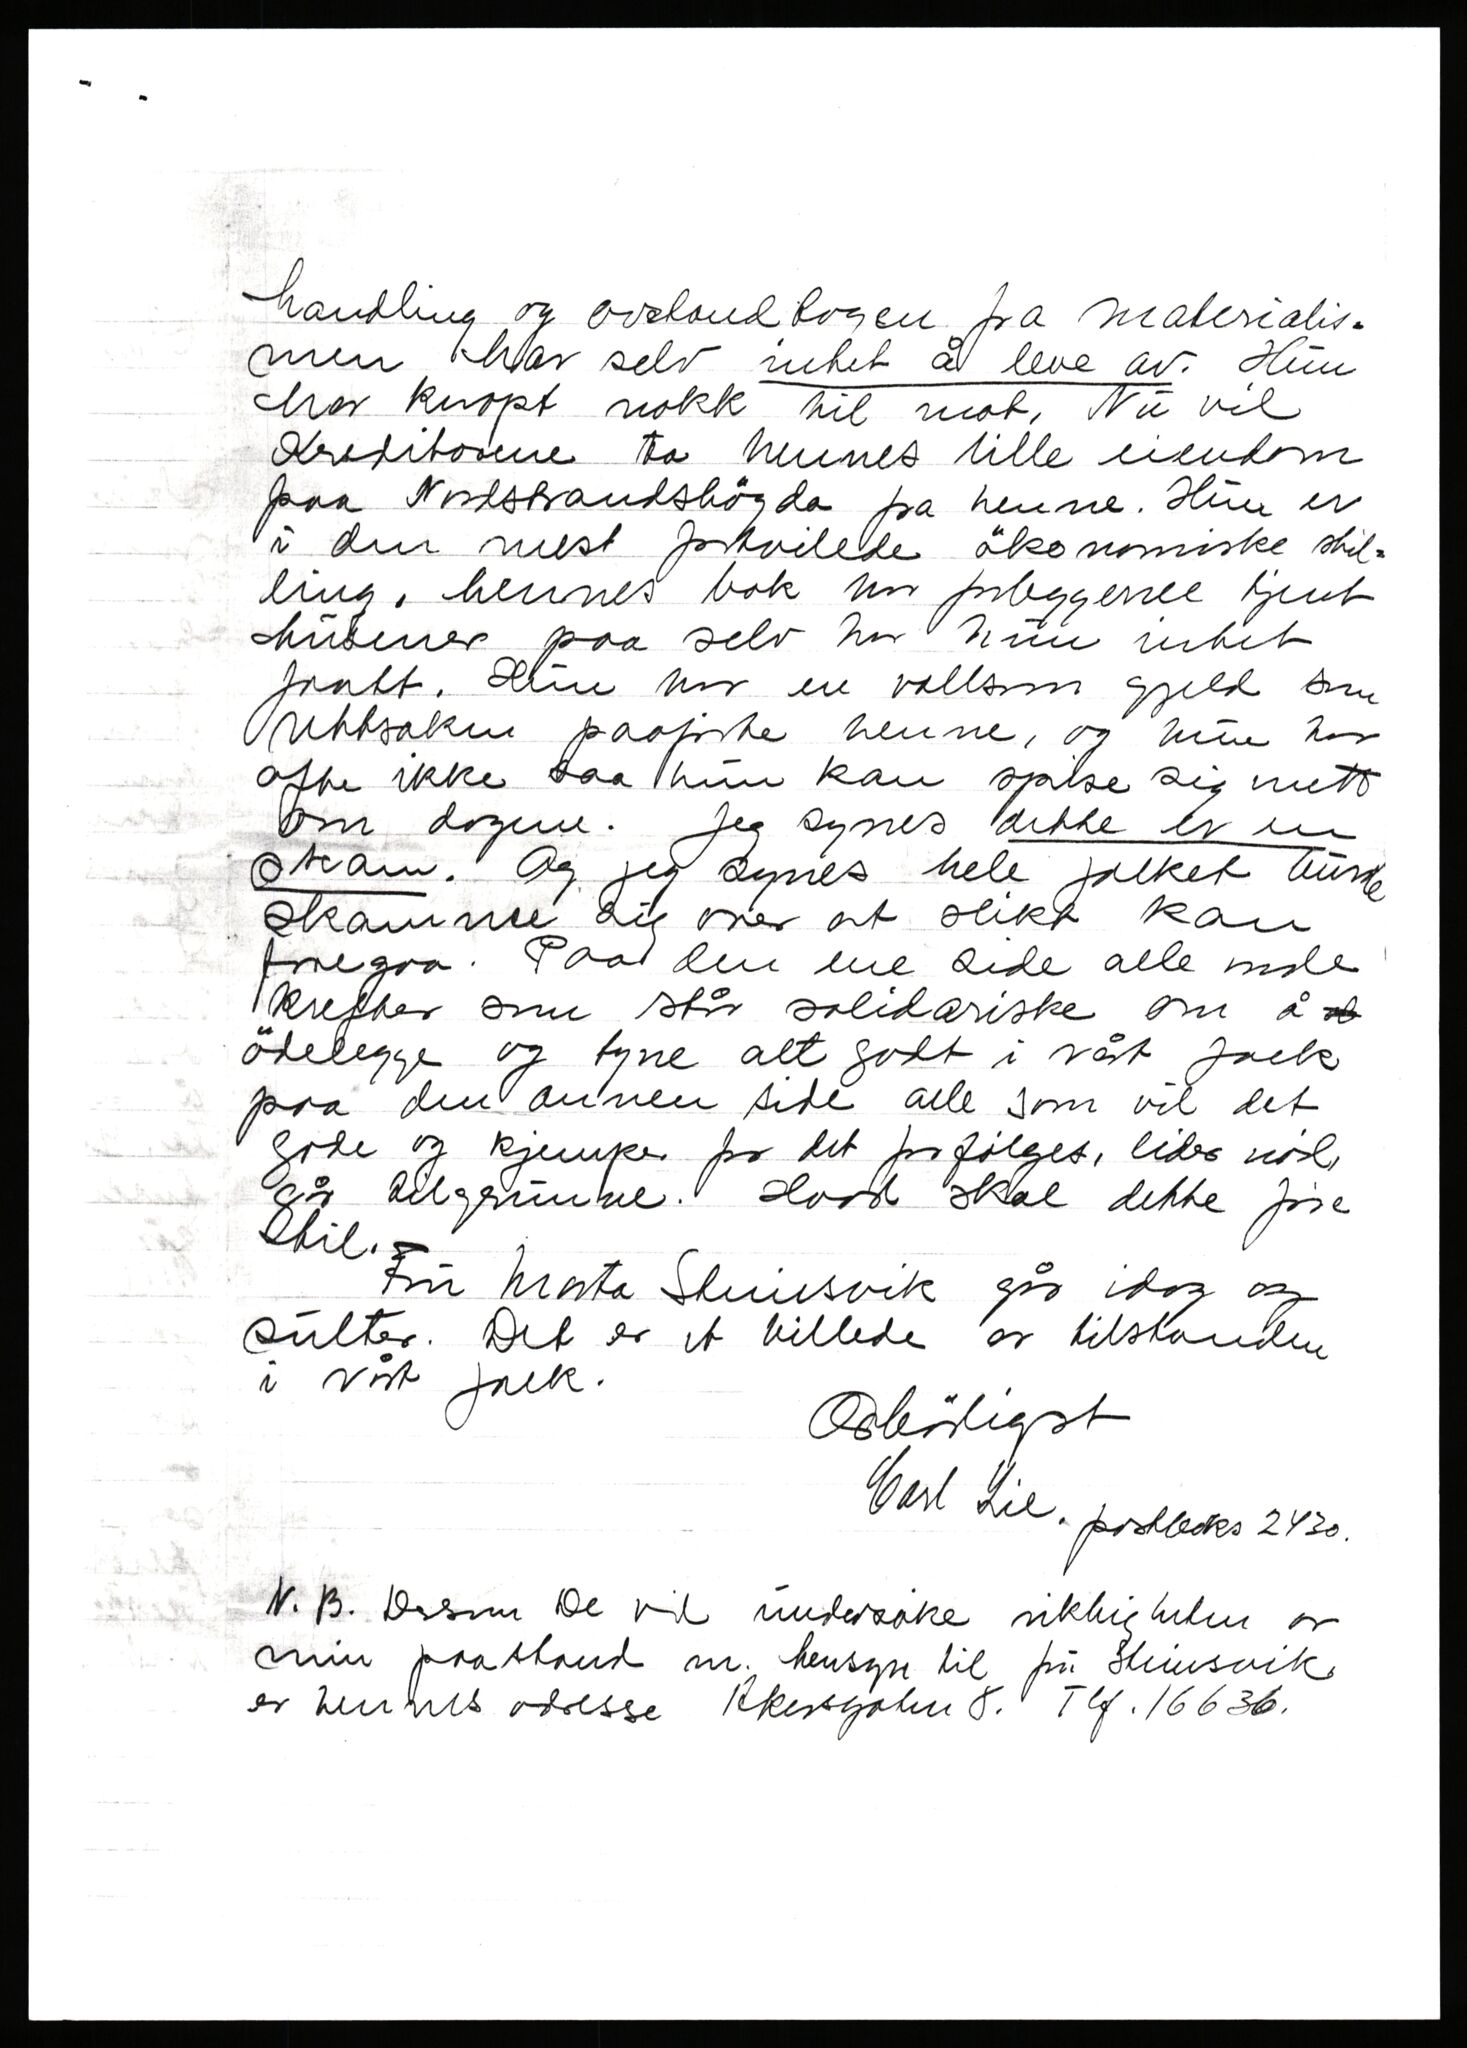 handling og avstandtagen fra materialis-
men har selv intet å leve av. Hun
har knapt nokk til mat. Nu vil
Kreditorene ta hennes lille eiendom
paa Nordstrandshögda fra henne. Hun er
i den mest fortvilede ökonomiske stil-
ling, hennes bok har forleggerne tjent
tusener paa selv har hun intet
faatt. Hun har en voldsom gjeld som
rettsaken paaförte henne, og hun har
ofte ikke saa hun kan spise sig mett
om dagene. Jeg synes dette er en
skam. Og jeg synes hele folket burde
skamme sig over at slikt kan
foregaa. Paa den ene side alle onde
krefter som står solidariske om å
ödelegge og tyne alt godt i vårt folk
paa den annen side alle som vil det
gode og kjemper for det forfölges, lider nöd,
går tilgrunne. Hvad skal dette före
til.
Fru Marta Steinsvik går idag og
sulter. Det er et billede av tilstanden
i vårt folk.
Ærbödigst
Carl Lie. postboks 2430.
N.B. Dersom De vil undersöke riktigheten av
min paastand m. hensyn til fru Steinsvik
er hennes adresse Akersgaten 8. Tlf. 16636.